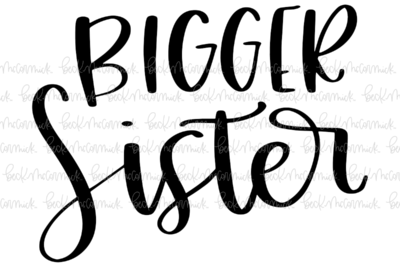 BIGGER
Sister